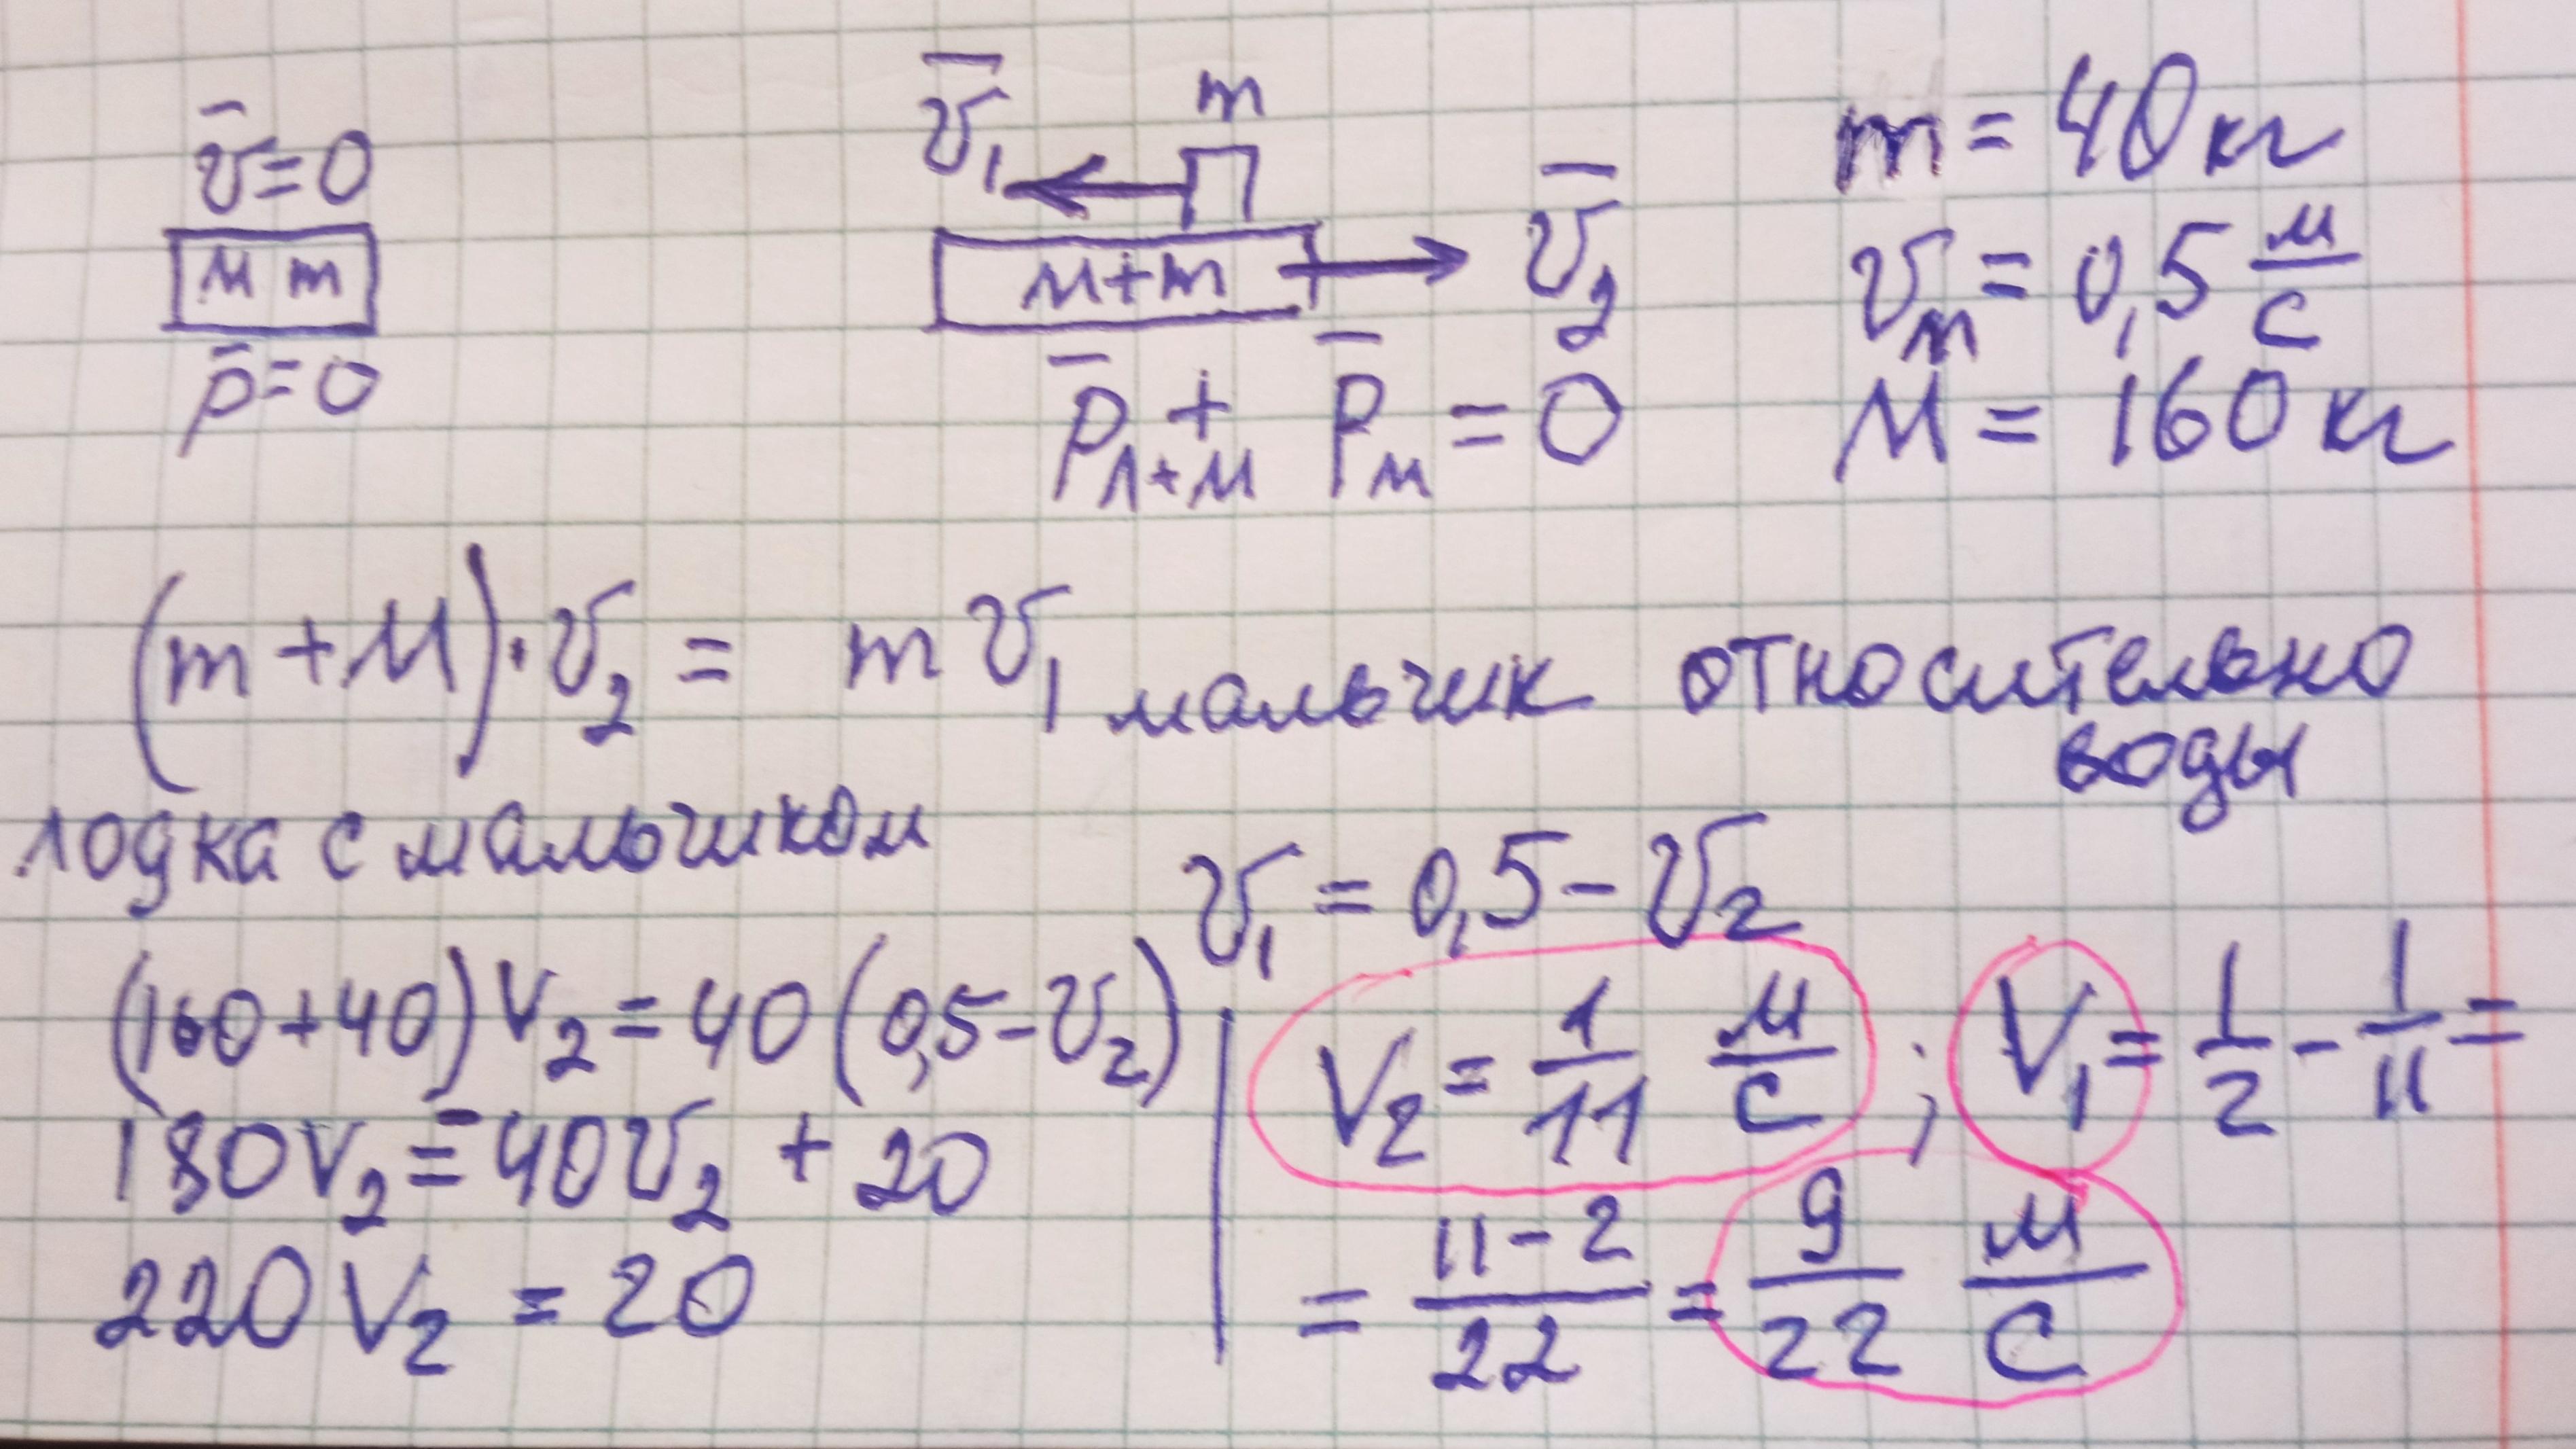 v̅=0
M m
p̅=0
v̅₁
m
M+m
v̅₂
p̅л+м + p̅м = 0
m = 40 кг
vм = 0,5 м/с
M = 160 кг
(m+M)·v₂ = m v₁ мальчик относительно
воды
лодка с мальчиком
v₁ = 0,5 - v₂
(160+40) v₂ = 40 (0,5-v₂)
180v₂ = -40v₂ + 20
220 v₂ = 20
v₂ = 1/11 м/с ; v₁ = 1/2 - 1/11 =
= (11-2)/22 = 9/22 м/с